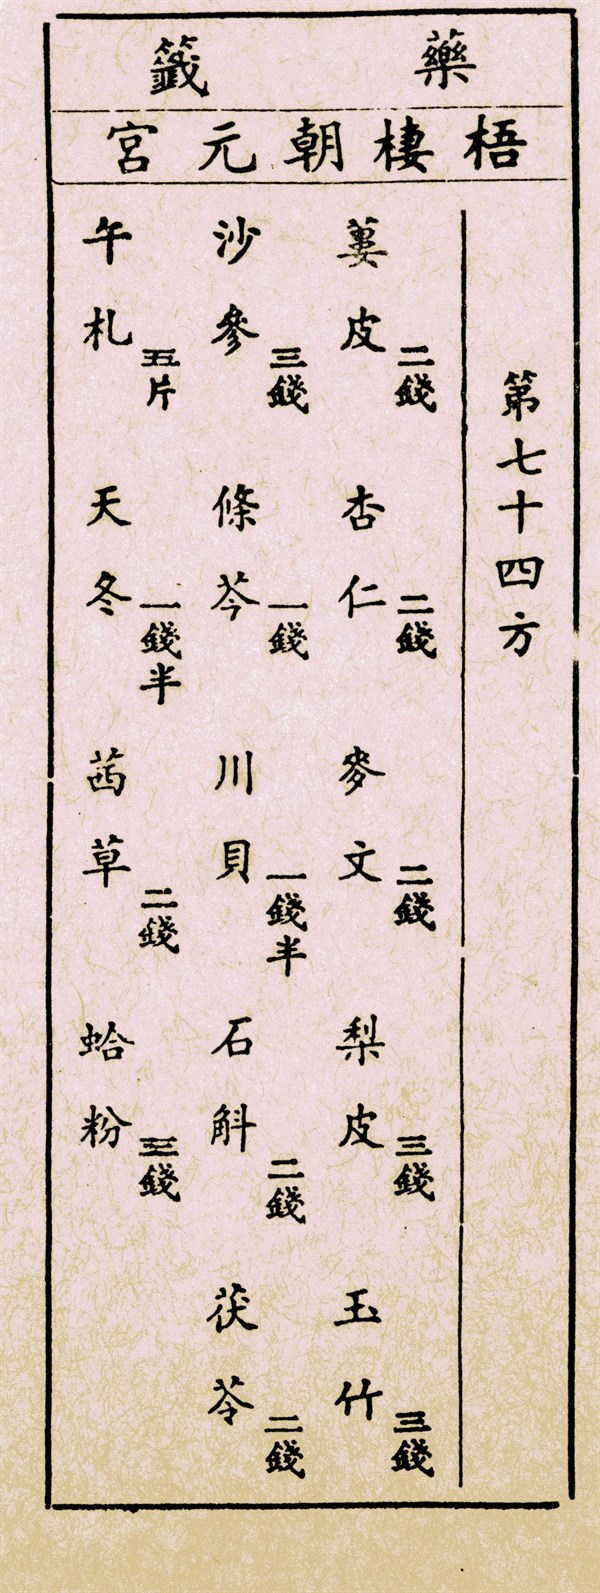 藥籤
梧棲朝元宮
第七十四方
蔞皮二錢 杏仁二錢 麥文二錢 梨皮三錢 玉竹三錢
沙參三錢 條芩一錢 川貝一錢半 石斛二錢 茯苓二錢
午札五片 天冬一錢半 茜草二錢 蛤粉三錢